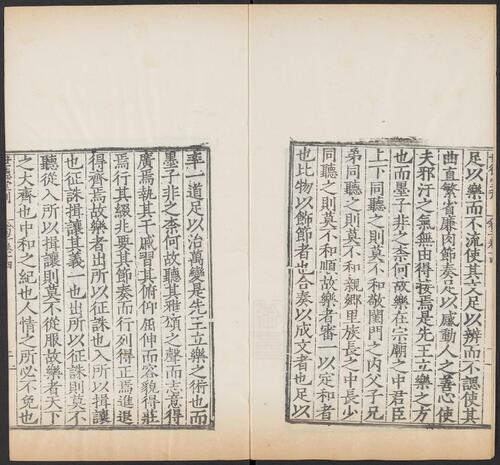 足以樂而不流使其文足以辨而不諰使其
曲直繁省廉肉節奏足以感動人之善心使
夫邪汙之氣無由得接焉是先王立樂之方
也而墨子非之柰何故樂在宗廟之中君臣
上下同聽之則莫不和敬閨門之內父子兄
弟同聽之則莫不和親鄉里族長之中長少
同聽之則莫不和順故樂者審一以定和者
也比物以飾節者也合奏以成文者也足以
率一道足以治萬變是先王立樂之術也而
墨子非之柰何故聽其雅頌之聲而志意得
廣焉執其干戚習其俯仰屈伸而容貌得莊
焉行其綴兆要其節奏而行列得正焉進退
得齊焉故樂者出所以征誅也入所以揖讓
也征誅揖讓其義一也出所以征誅則莫不
聽從入所以揖讓則莫不從服故樂者天下
之大齊也中和之紀也人情之所必不免也